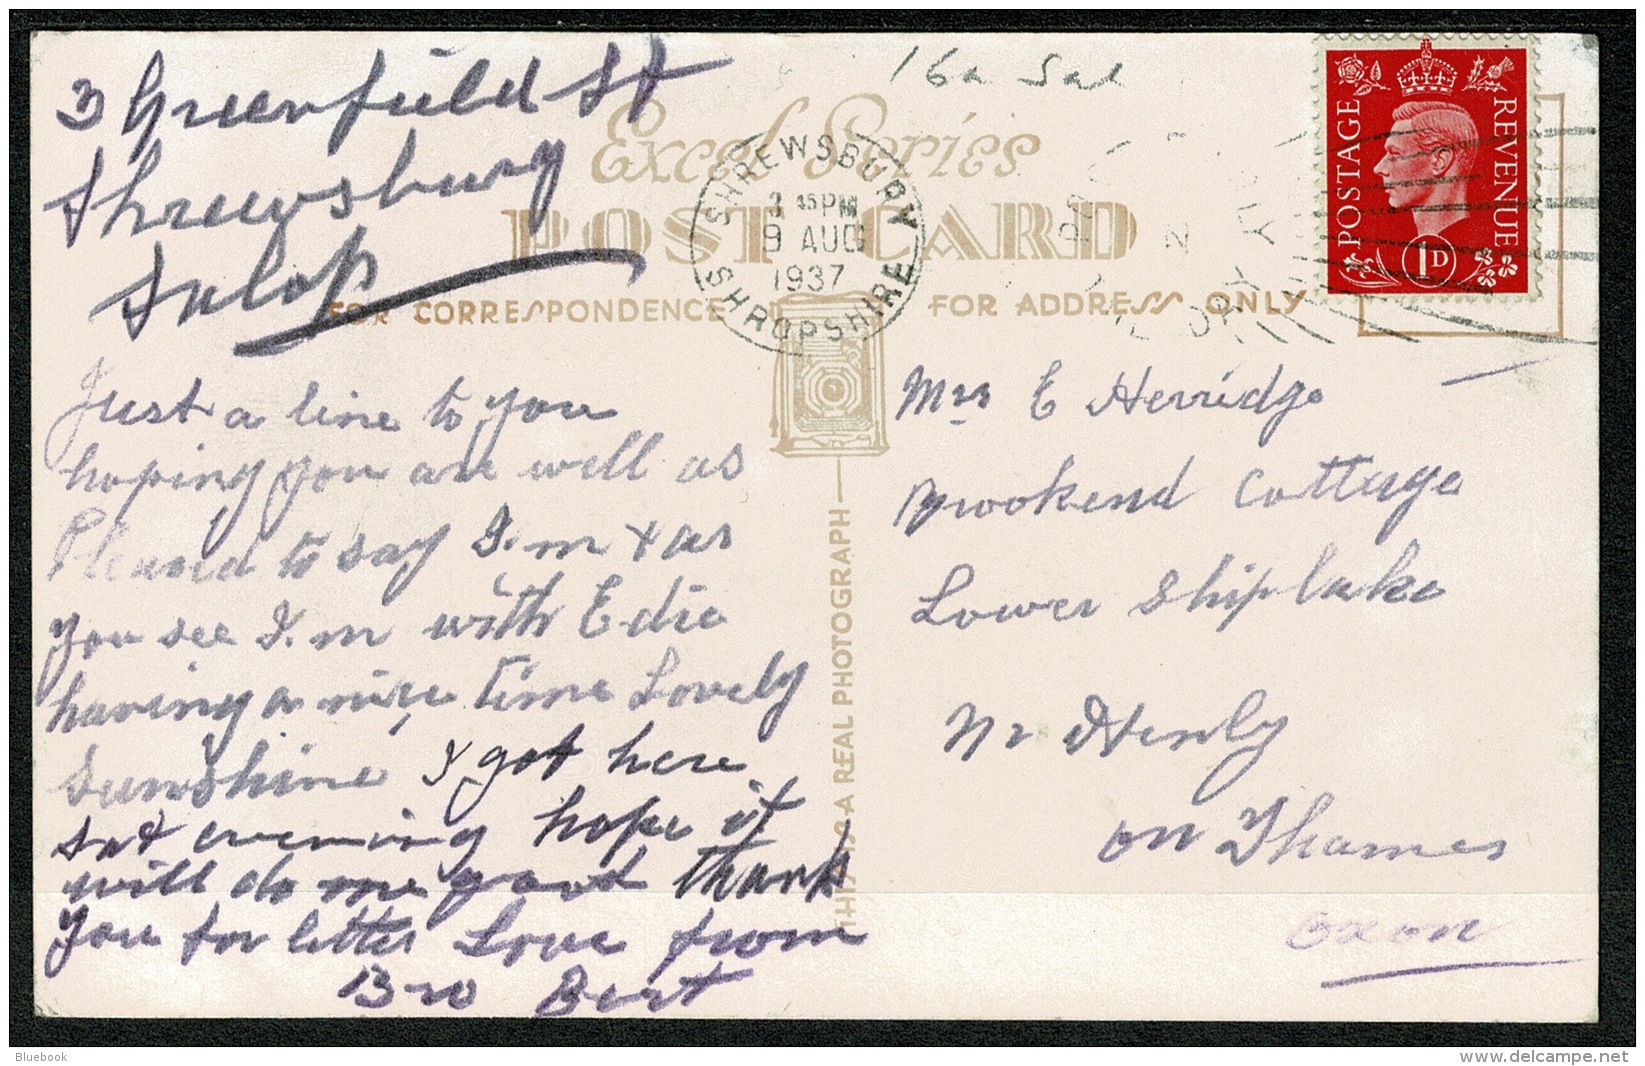 3 Greenfield St
Shrewsbury
Salop
16a Sal
Excel Series
POST CARD
FOR CORRESPONDENCE
FOR ADDRESS ONLY
SHREWSBURY
SHROPSHIRE
15 PM
9 AUG
1937
POSTAGE
REVENUE
1D
Just a line to you
hoping you are well as
Pleased to say I.m & as
you see I.m with Edie
having a nice time Lovely
Sunshine I got here
Sat evening hope it
will do me good thank
you for letter Love from
Bro Bert
THIS IS A REAL PHOTOGRAPH
Mrs E Herridge
Cottage
Lower Shiplake
Nr Henly
on Thames
Oxon
Bluebook
www.delcampe.net